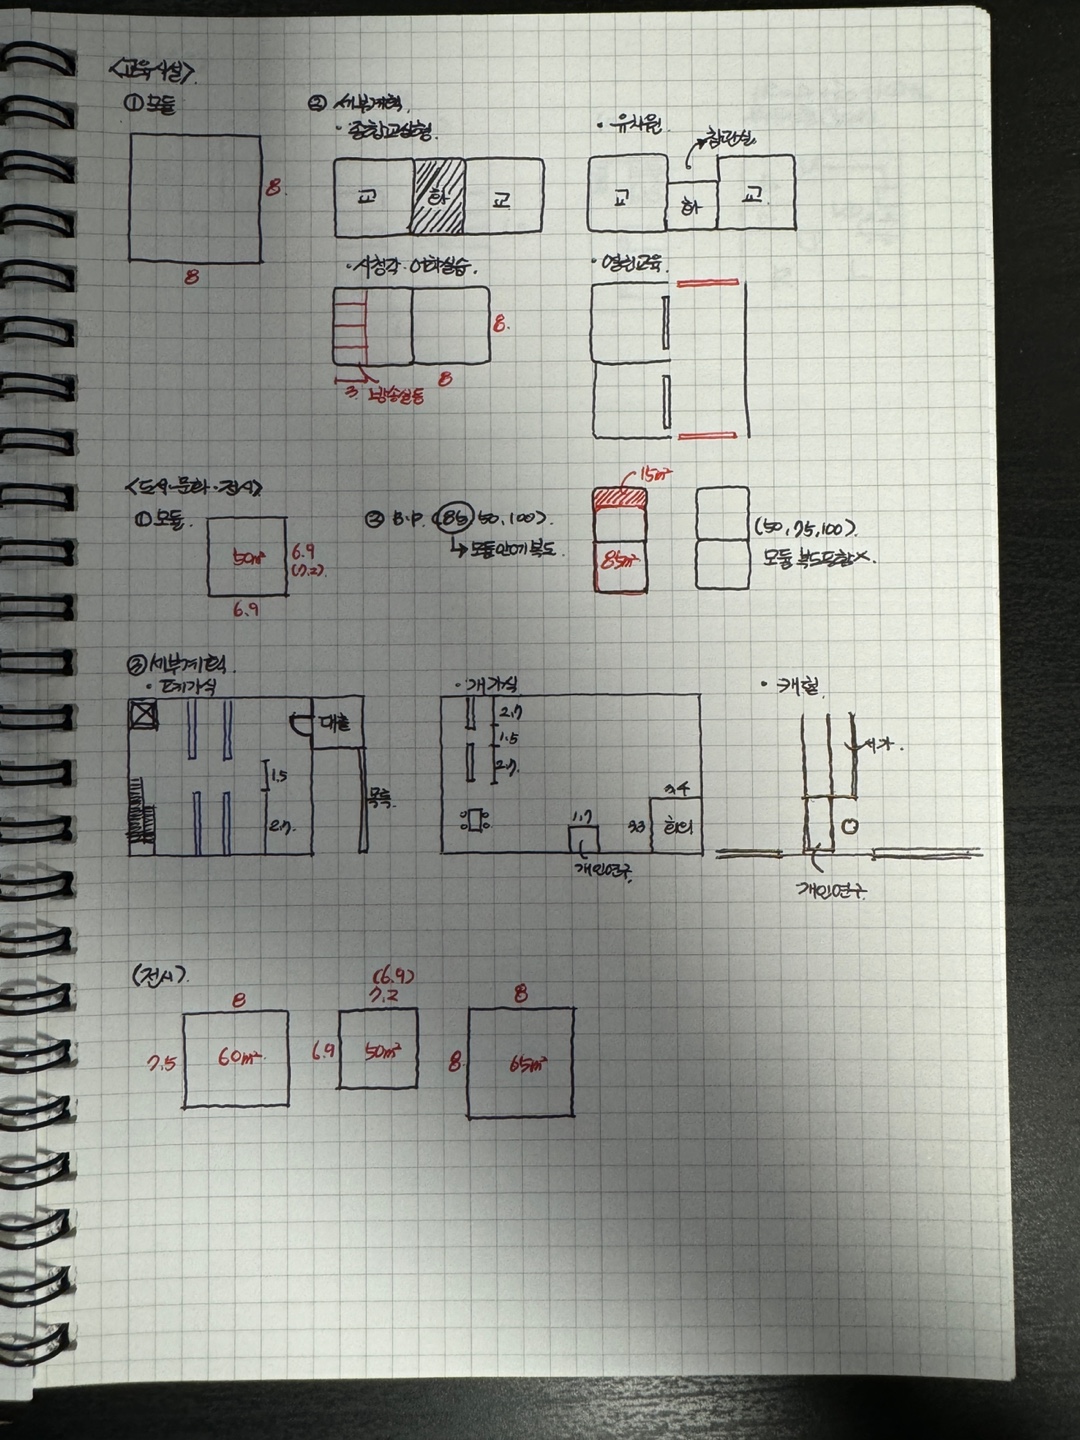 <교육시설>
① 모듈
8
8
② 세부계획
· 종합교실형
교
화
교
· 유치원
참관실
교
화
교
· 시청각·어학실습
8
8
3
방송실등
· 열린교육
<도서·문화·전시>
① 모듈
50m²
6.9
(7.2)
6.9
② B.P. (85) 50, 100)
↳ 모듈안에 복도
15m²
85m²
(50, 75, 100)
모듈 복도포함×
③ 세부계획
· 폐가식
대출
목록
1.5
2.7
· 개가식
2.7
1.5
2.7
1.7
개인연구
3.3
회의
· 캐럴
서가
개인연구
(전시)
8
7.5
60m²
(6.9)
7.2
6.9
50m²
8
8
65m²